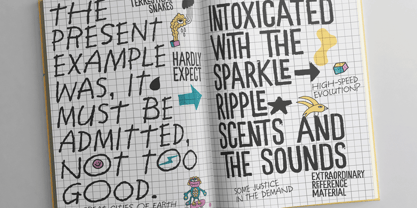 THE
PRESENT
EXAMPLE
WAS, IT
MUST BE
ADMITTED,
NOT TOO
GOOD.
SNAKES
HARDLY
EXPECT
CITIES OF EARTH
INTOXICATED
WITH THE
SPARKLE
RIPPLE
SCENTS AND
THE SOUNDS
HIGH-SPEED
EVOLUTION?
SOME JUSTICE
IN THE DEMAND
EXTRAORDINARY
REFERENCE
MATERIAL